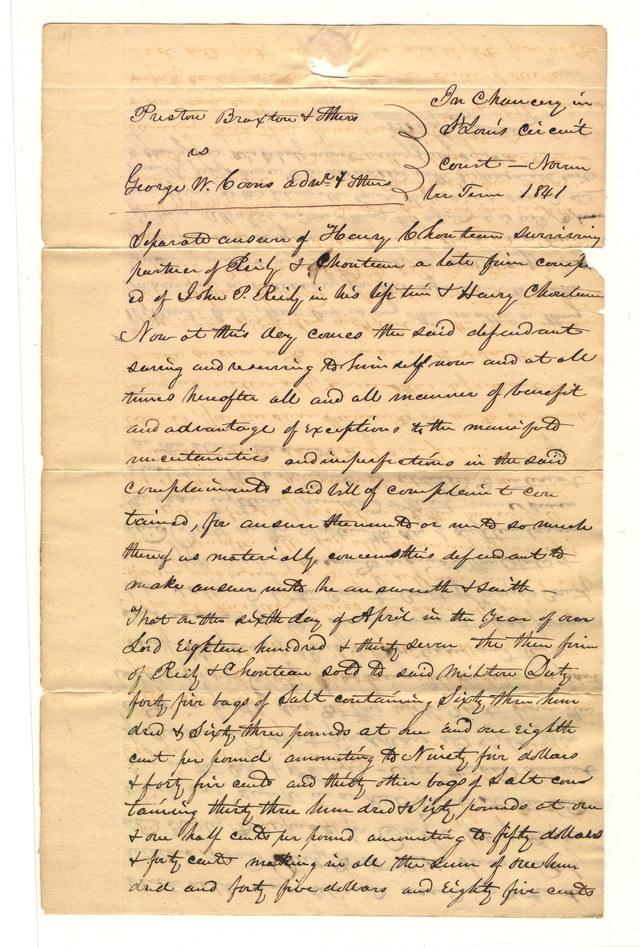 Preston Braxton & others
vs
George W. Coons adm.r & others
In Chancery in
St Louis circuit
court — Novem
ber Term 1841
Separate answer of Henry Chouteau surviving
partner of Reily & Chouteau a late firm comp
ed of John P. Reily in his life time & Henry Chouteau
Now at this day comes the said defendant
saving and reserving to himself now and at all
times hereafter all and all manner of benefit
and advantage of exceptions to the manifold
uncertainties and imperfections in the said
complainants said bill of complaint con
tained, for answer thereunto or unto so much
thereof as materially concerns this defendant to
make answer unto he answereth & saith —
That on the sixth day of April in the Year of our
Lord Eighteen hundred & thirty seven the then firm
of Reily & Chouteau sold to said Milton Duty,
forty five bags of Salt containing Sixty three hun
dred & Sixty three pounds at one and one Eighth
cent per pound amounting to Ninety five dollars
& forty five cents and thirty other bags of Salt con
taining thirty three hundred & Sixty pounds at one
& one half cents per pound amounting to fifty dollars
& forty cents making in all the sum of one hun
dred and forty five dollars and Eighty five cents